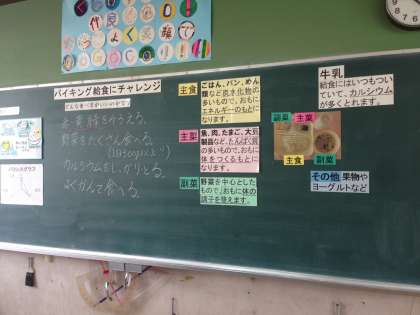 バイキング給食にチャレンジ
どんな食べ方がいいのかな？
赤・黄・緑をそろえる。
野菜をたくさん食べる。
カルシウムをしっかりとる。
よくかんで食べる。
主食
ごはん、パン、めん
類など炭水化物の
多いもので、おもに
エネルギーのもとに
なります。
主菜
魚、肉、たまご、大豆
製品など、たんぱく質
の多いもので、おもに
体をつくるもとに
なります。
副菜
野菜を中心とした
もので、おもに体の
調子を整えます。
牛乳
給食にはいつもつい
ていて、カルシウム
が多くとれます。
副菜
主菜
主食
副菜
その他 果物や
ヨーグルトなど